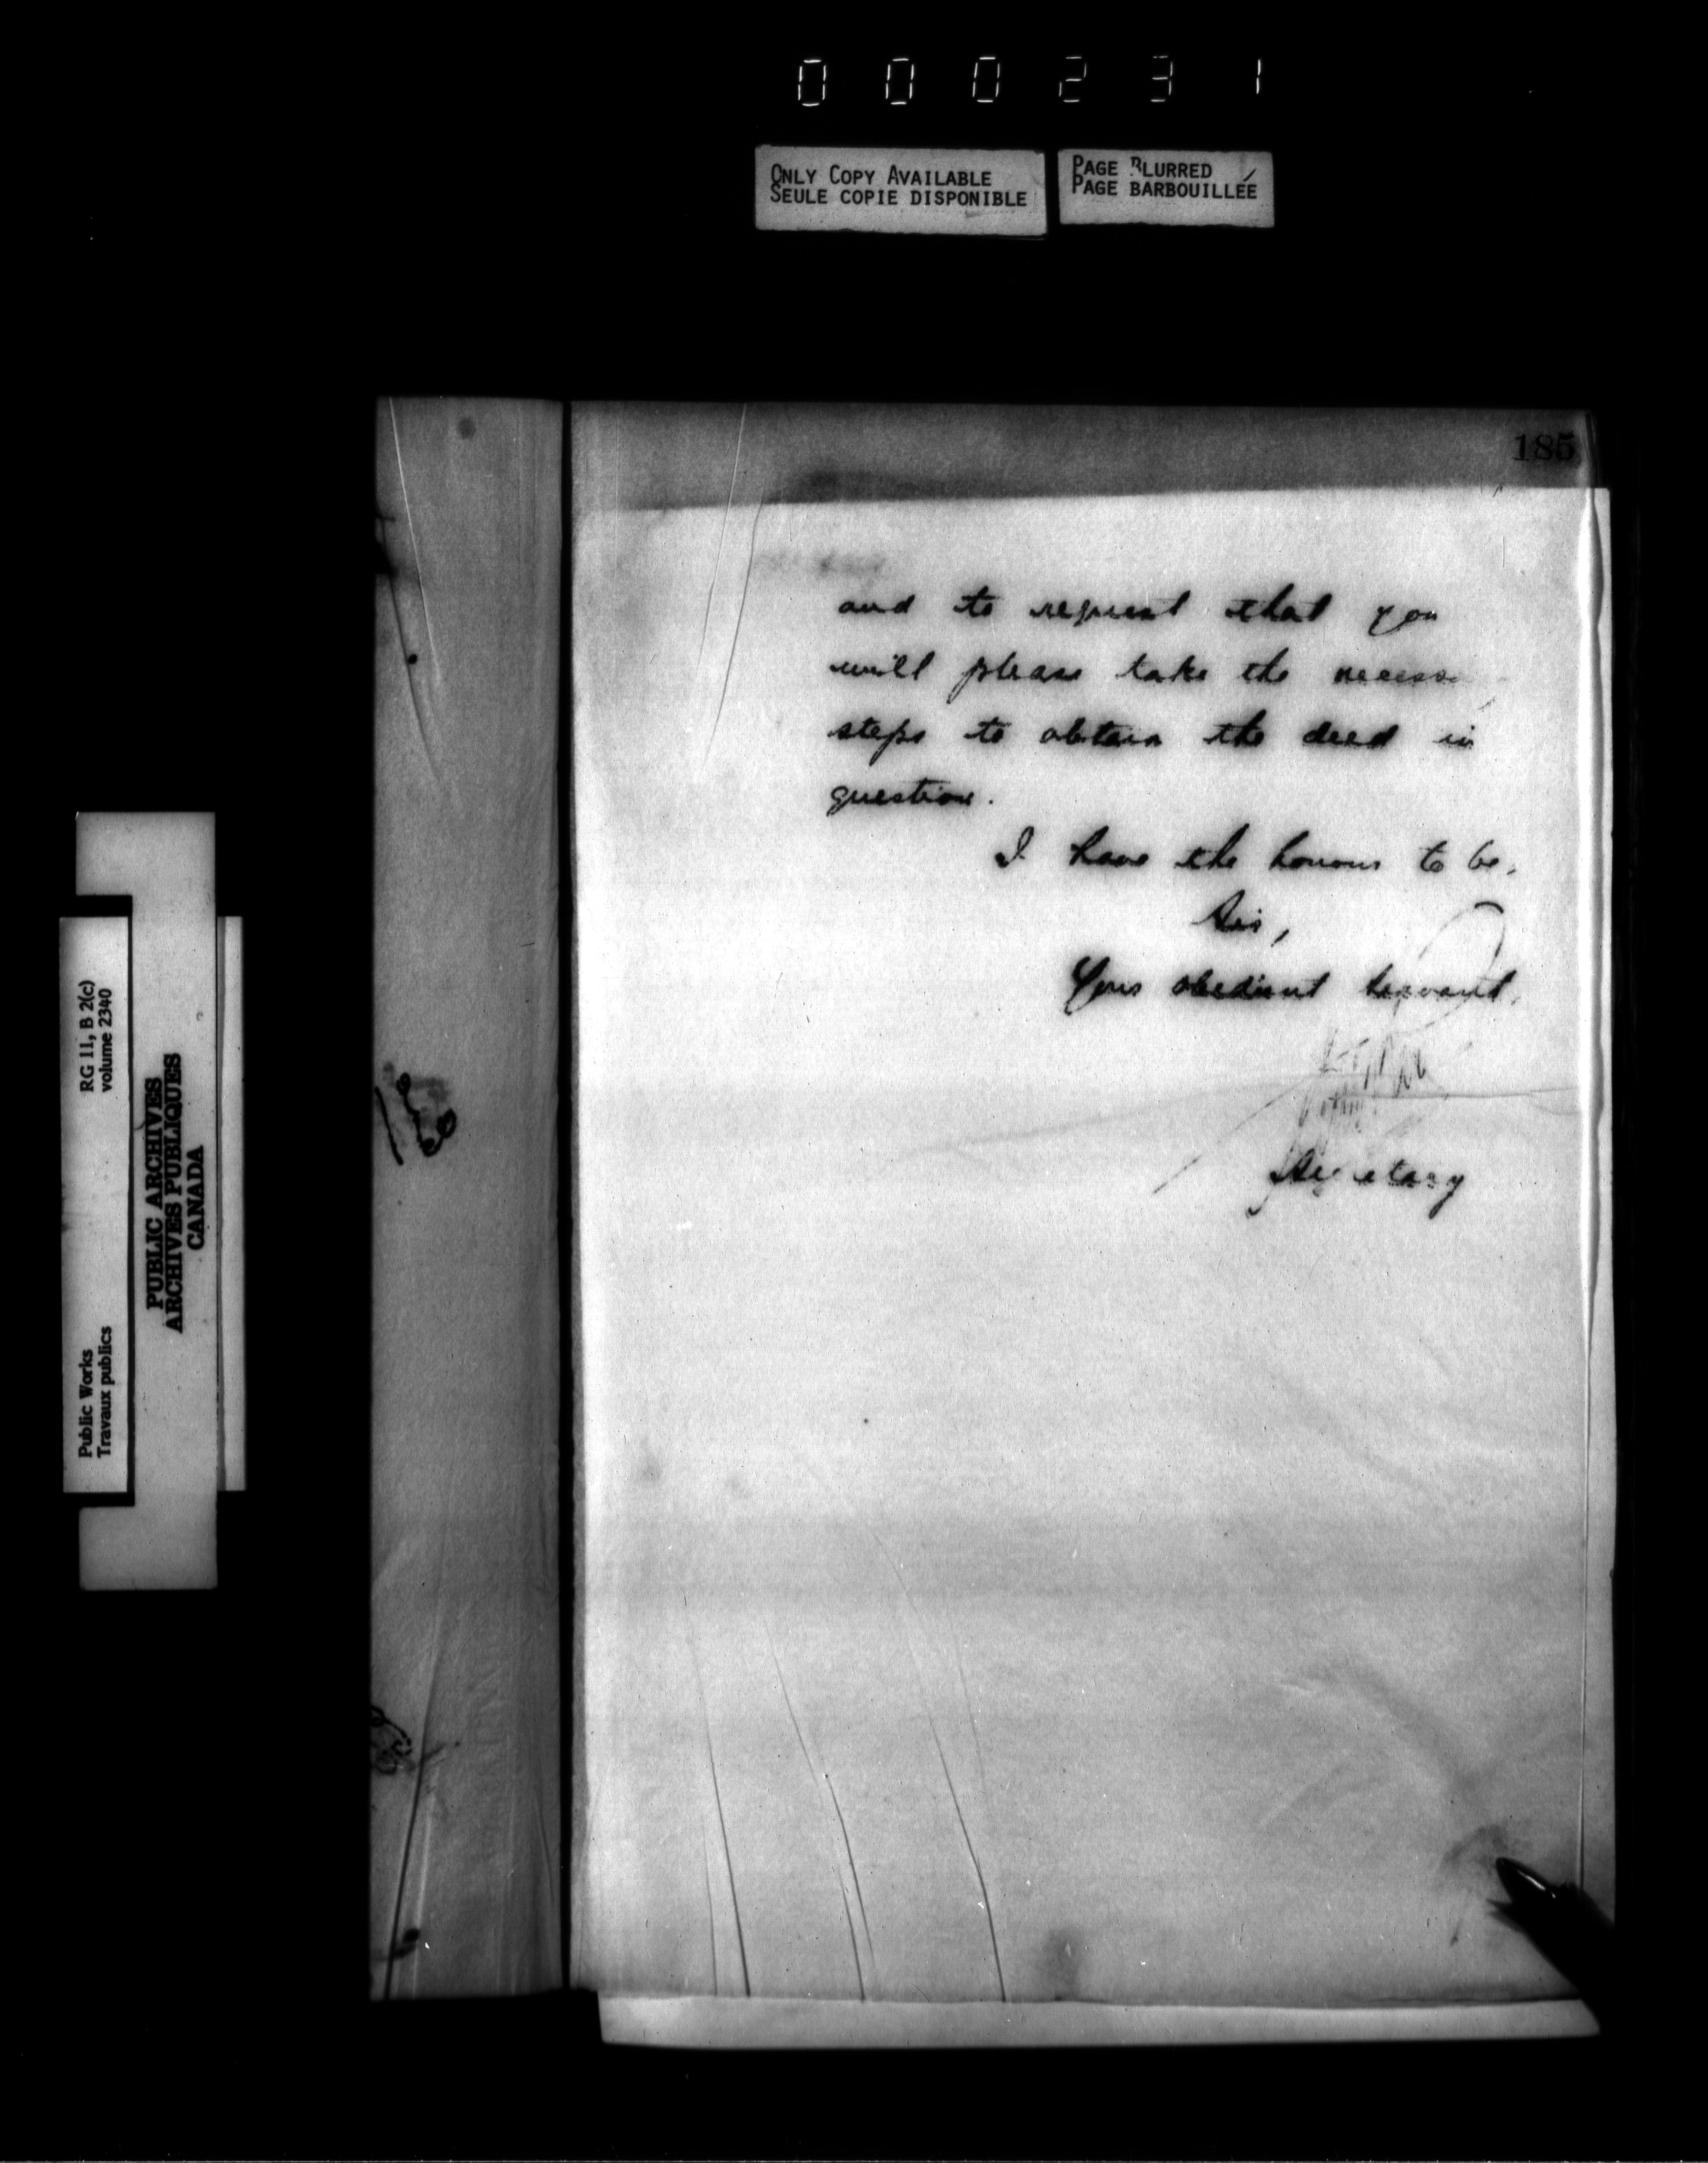 000231
ONLY COPY AVAILABLE
SEULE COPIE DISPONIBLE
PAGE BLURRED
PAGE BARBOUILLÉE
185
and to request that you
will please take the necess
steps to obtain the deed in
question.
I have the honour to be,
Sir,
Your obedient servant,
Secretary
Public Works
Travaux publics
RG 11, B 2(c)
volume 2340
PUBLIC ARCHIVES
ARCHIVES PUBLIQUES
CANADA